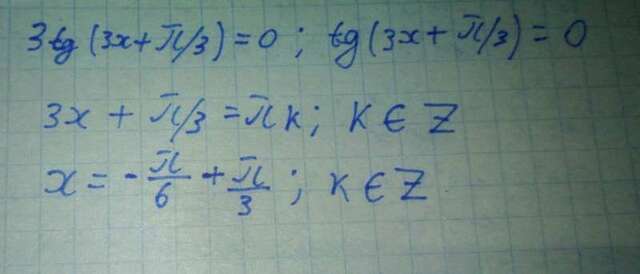 3tg(3x+π/3)=0; tg(3x+π/3)=0
3x+π/3=πk; k∈Z
x=-π/6+π/3; k∈Z